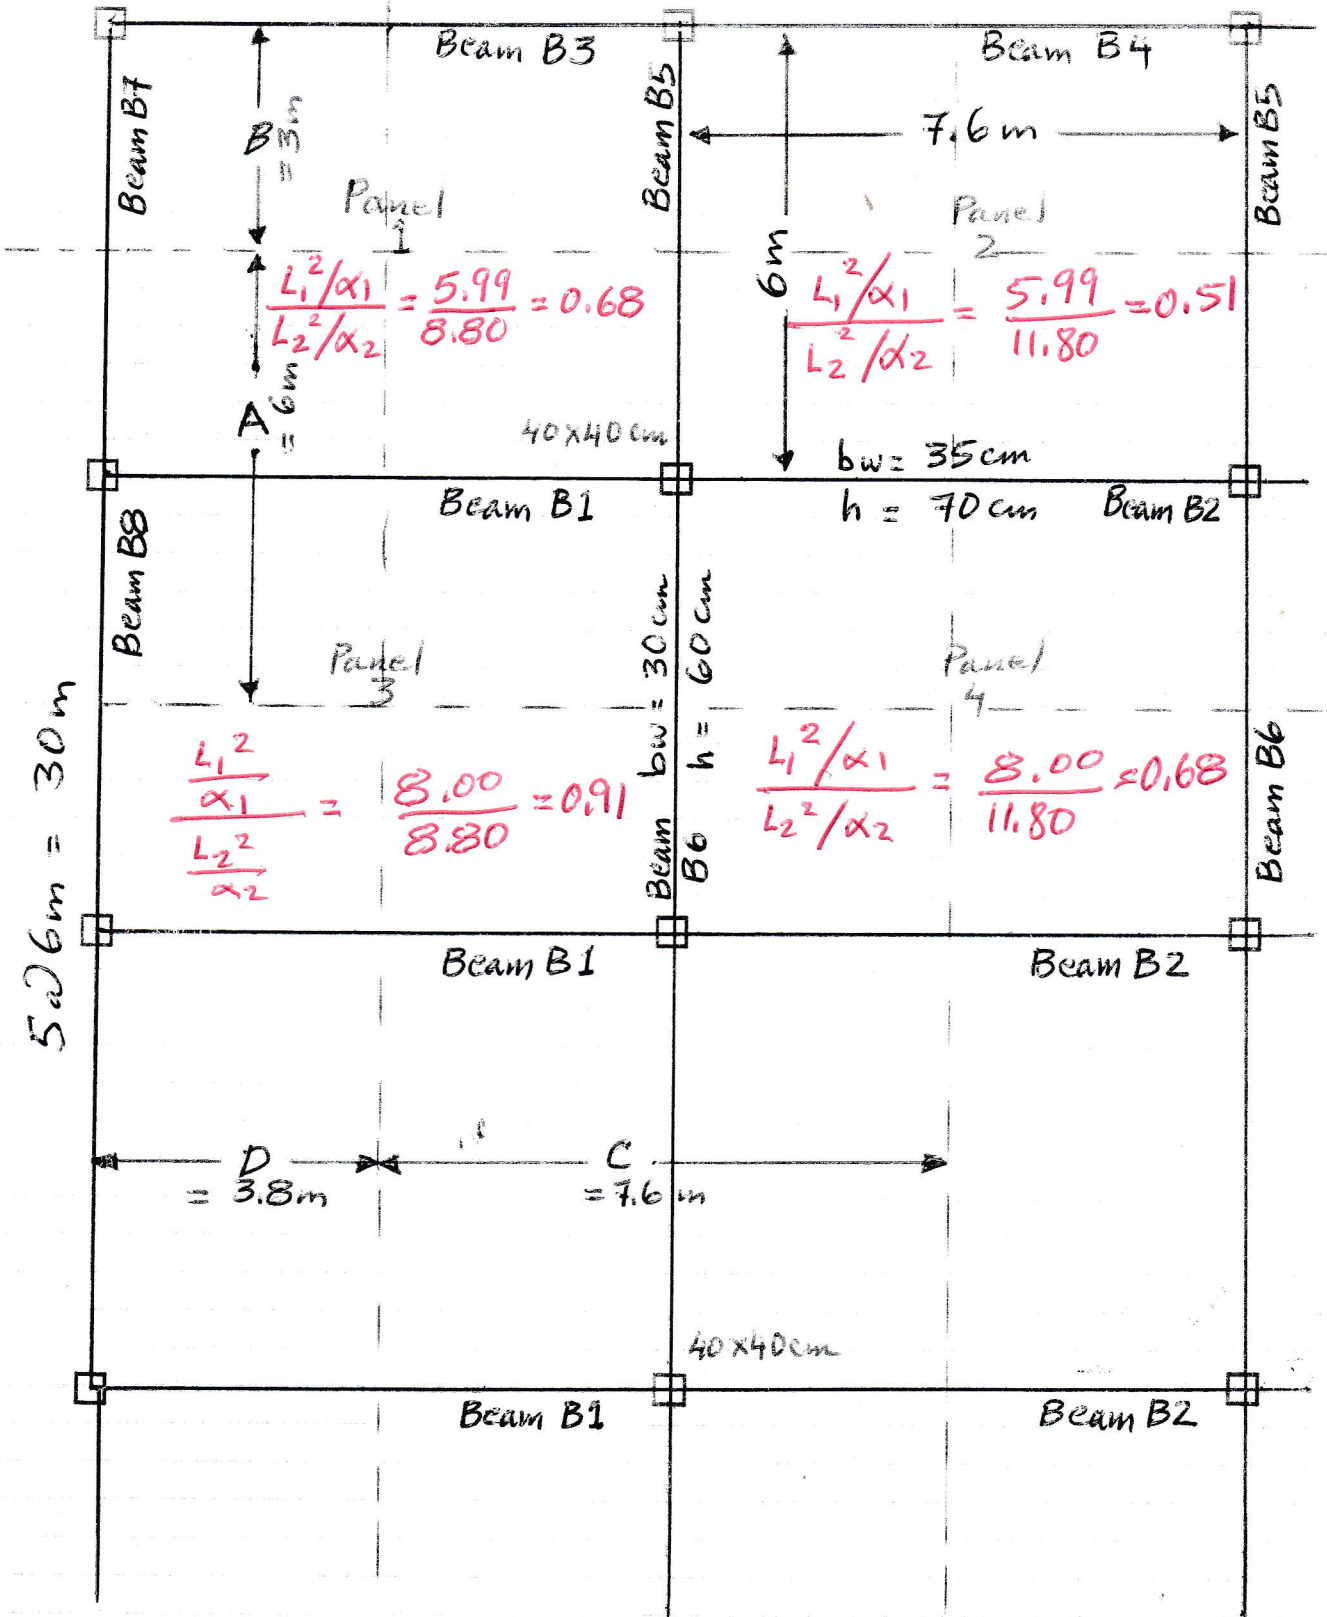 Beam B3
Beam B4
Beam B7
B
= 3m
Beam B5
7.6 m
Beam B5
Panel
1
Panel
2
6m
L₁²/α₁ / L₂²/α₂ = 5.99 / 8.80 = 0.68
L₁²/α₁ / L₂²/α₂ = 5.99 / 11.80 = 0.51
A
= 6m
40x40 cm
bw = 35 cm
h = 70 cm
Beam B1
Beam B2
Beam B8
bw = 30 cm
h = 60 cm
Panel
3
Panel
4
L₁²/α₁ / L₂²/α₂ = 8.00 / 8.80 = 0.91
L₁²/α₁ / L₂²/α₂ = 8.00 / 11.80 = 0.68
Beam
B6
Beam B6
5 @ 6m = 30 m
Beam B1
Beam B2
D
= 3.8 m
C
= 7.6 m
40x40cm
Beam B1
Beam B2